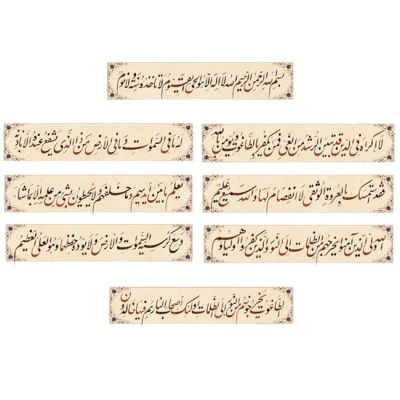 بسم الله الرحمن الرحیم الله لا اله الا هو الحی القیوم لا تاخذه سنة ولا نوم
له ما فی السموات و ما فی الارض من ذا الذی یشفع عنده الا باذنه
یعلم ما بین ایدیهم و ما خلفهم ولا یحیطون بشیء من علمه الا بما شاء
وسع کرسیه السموات والارض ولا یوده حفظهما وهو العلی العظیم
لا اکراه فی الدین قد تبین الرشد من الغی فمن یکفر بالطاغوت ویومن بالله
فقد استمسک بالعروة الوثقی لا انفصام لها والله سمیع علیم
الله ولی الذین آمنوا یخرجهم من الظلمات الی النور والذین کفروا اولیاؤهم
الطاغوت یخرجونهم من النور الی الظلمات اولئک اصحاب النار هم فیها خالدون